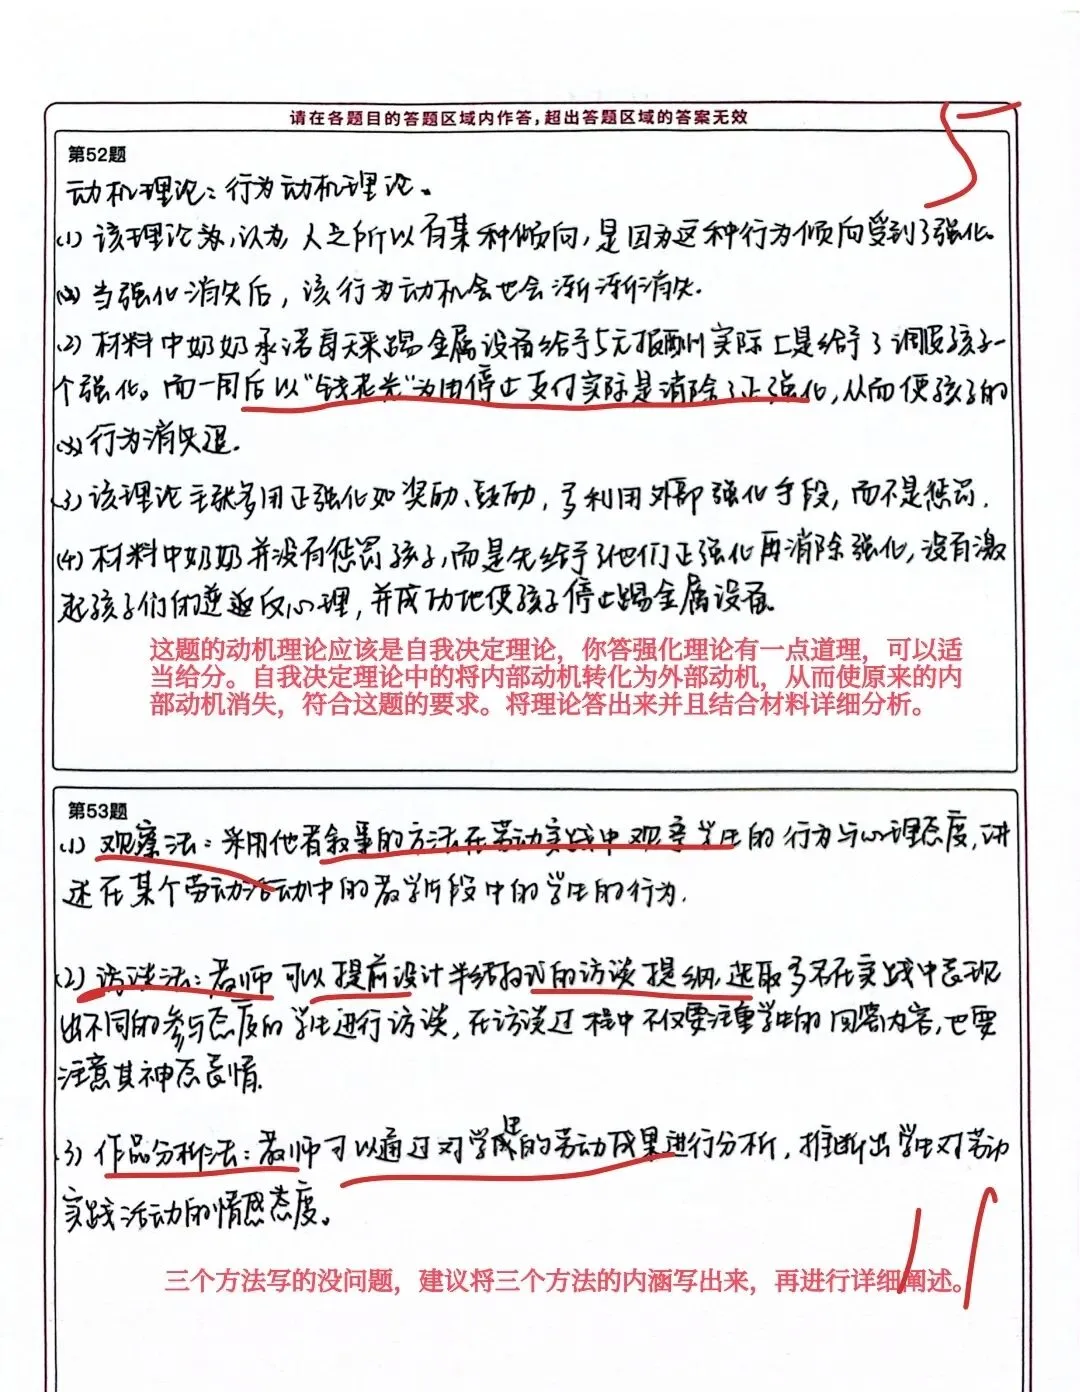 请在各题目的答题区域内作答,超出答题区域的答案无效
5
第52题
动机理论：行为动机理论。
(1) 该理论认为,人之所以有某种倾向,是因为这种行为倾向受到了强化。
当强化消失后，该行为动机会也会渐渐消失.
(2) 材料中奶奶承诺每天来踢金属设备给予5元报酬实际上是给了调皮孩子一
个强化。而一周后以“钱花光”为由停止支付实际是消除了正强化,从而使孩子的
行为消失退.
(3) 该理论主张多用正强化如奖励、鼓励，多利用外部强化手段，而不是惩罚.
(4) 材料中奶奶并没有惩罚孩子,而是先给予了他们正强化再消除强化,没有激
起孩子们的逆返反心理,并成功地使孩子停止踢金属设备.
这题的动机理论应该是自我决定理论，你答强化理论有一点道理，可以适
当给分。自我决定理论中的将内部动机转化为外部动机，从而使原来的内
部动机消失，符合这题的要求。将理论答出来并且结合材料详细分析。
第53题
(1) 观察法：采用他者叙事的方法在劳动实践中观察学生的行为与心理态度,讲
述在某个劳动活动中的教学片段中的学生的行为.
(2) 访谈法：教师可以提前设计半结构式的访谈提纲,选取多名在实践中表现
出不同的参与态度的学生进行访谈,在访谈过程中不仅要注重学生的回答内容,也要
注意其神态表情.
(3) 作品分析法：教师可以通过对学生的劳动成果进行分析，推断出学生对劳动
实践活动的情感态度。
三个方法写的没问题，建议将三个方法的内涵写出来，再进行详细阐述。